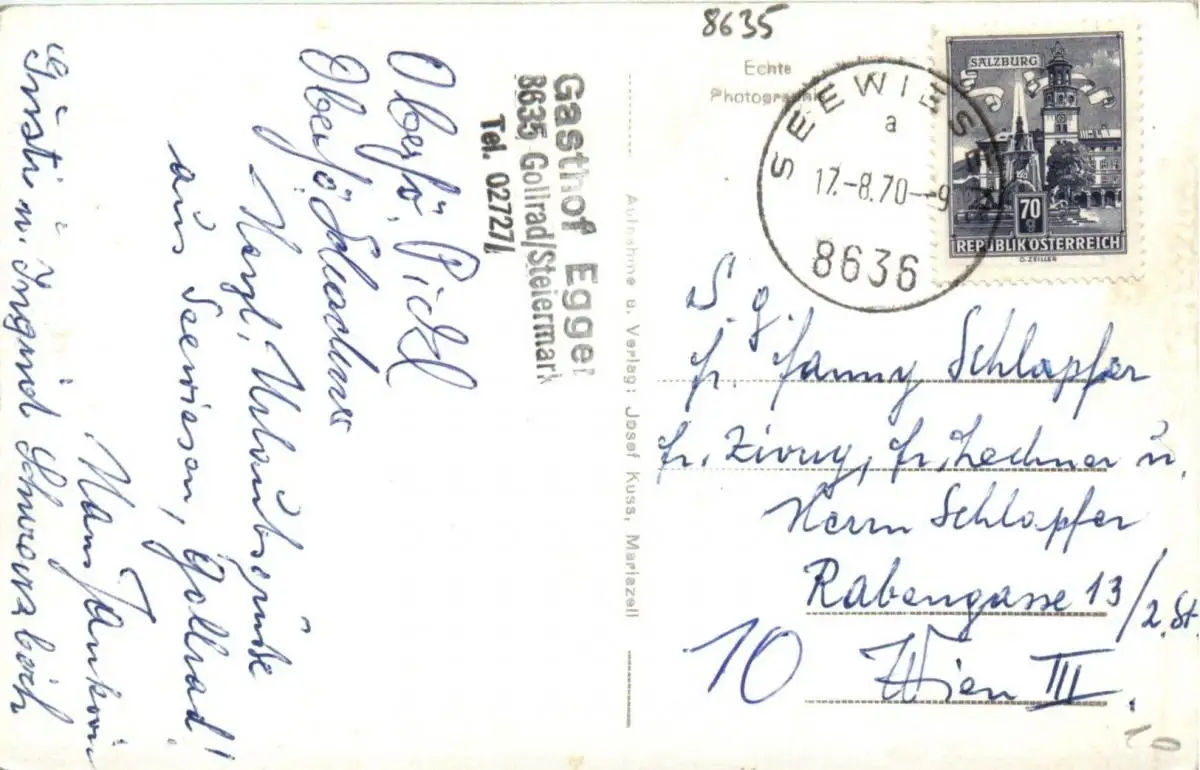 8635
Echte
Photographie
SEEWIESE
a
17.-8.70--9
8636
SALZBURG
70
g
REPUBLIK ÖSTERREICH
O. ZEILLER
Gasthof Egger
8635 Gollrad/Steiermark
Tel. 02727/
Oberfö. Pickl
Oberfö
Herzl. Urlaubsgrüße
aus Seewiesen, Gollrad!
Hans
Gusti u. Ingrid
Aufnahme u. Verlag: Josef Kuss, Mariazell
S. g.
Fr. Fanny Schlapfer
Fr. Zivny, Fr. Lechner u.
Herrn Schlapfer
Rabengasse 13/2. St
Wien III.
10
10